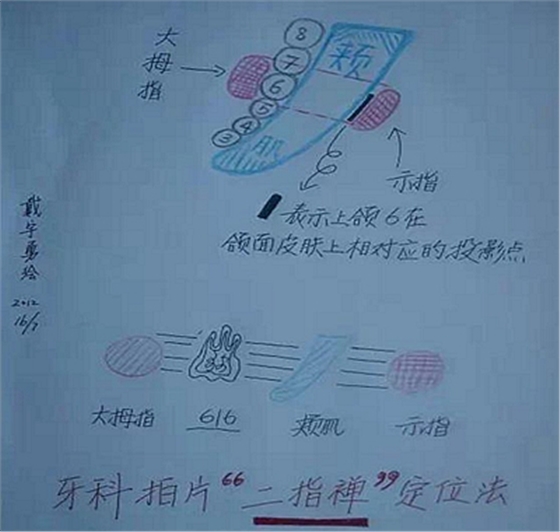 大拇指
8
7
6
5
4
3
颊
肌
示指
表示上颌6在
颌面皮肤上相对应的投影点
戴宇勇绘
2012
16/7
大拇指 6|6 颊肌 示指
牙科拍片“二指禅”定位法